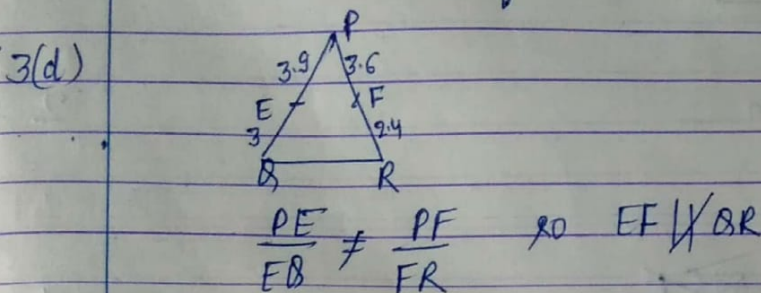 3(d)
P
3.9 3.6
E F
3 2.4
Q R
PE/EQ ≠ PF/FR so EF ∦ QR